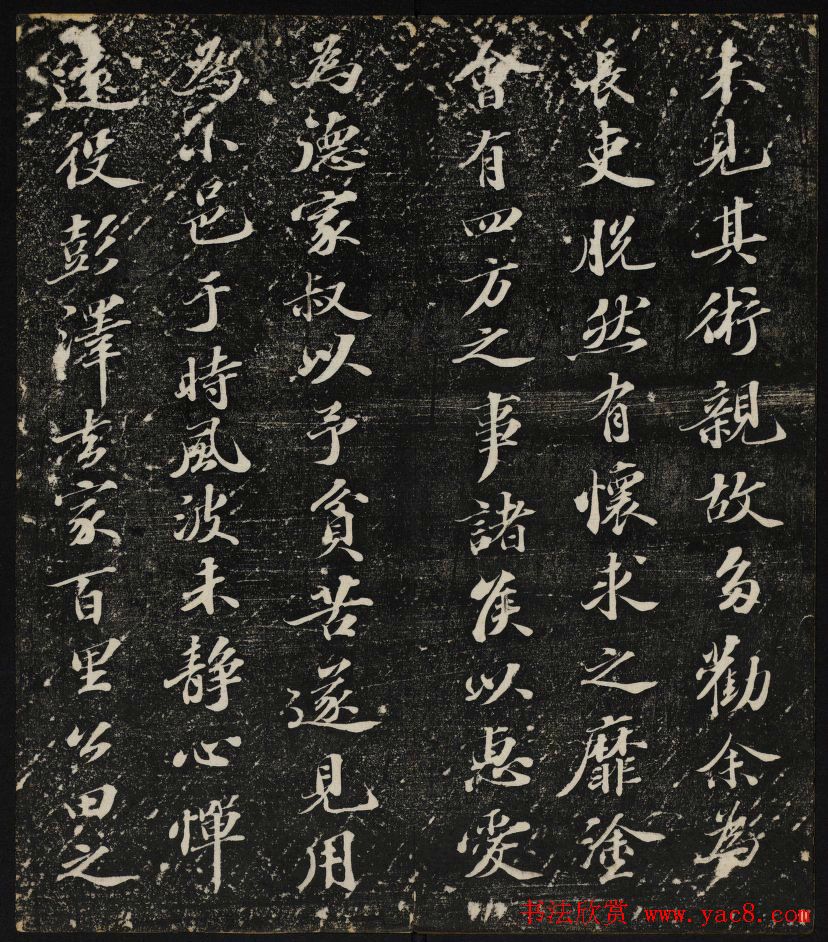 未見其術親故多勸余為
長吏脫然有懷求之靡塗
會有四方之事諸侯以惠愛
為德家叔以予貧苦遂見用
為小邑于時風波未靜心憚
遠役彭澤去家百里公田之
书法欣赏 www.yac8.com